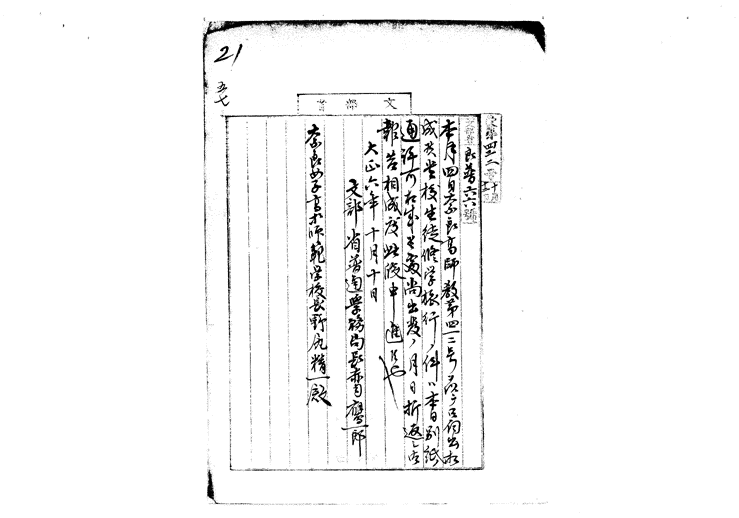 21
五七
文部省
良普六六號
本月四日奈良高師教第四一二号ヲ以テ伺出相
成候貴校生徒修学旅行ノ件ハ本日別紙
通許可相成候處尚出発ノ月日折返シ御
報告相成度此段申進候也
大正六年十月十日
文部省普通学務局長赤司鷹一郎
奈良女子高等師範学校長野尻精一殿